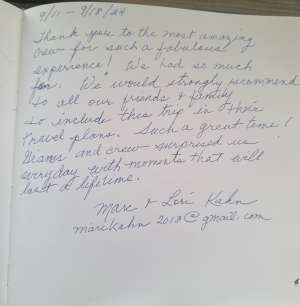 9/11 - 9/18/24
Thank you to the most amazing
crew for such a fabulous
experience! We had so much
fun. We would strongly recommend
to all our friends & family
to include this trip in their
travel plans. Such a great time!
and crew surprised us
everyday with moments that will
last a lifetime.
Marc & Lori Kahn
marckahn2018@gmail.com